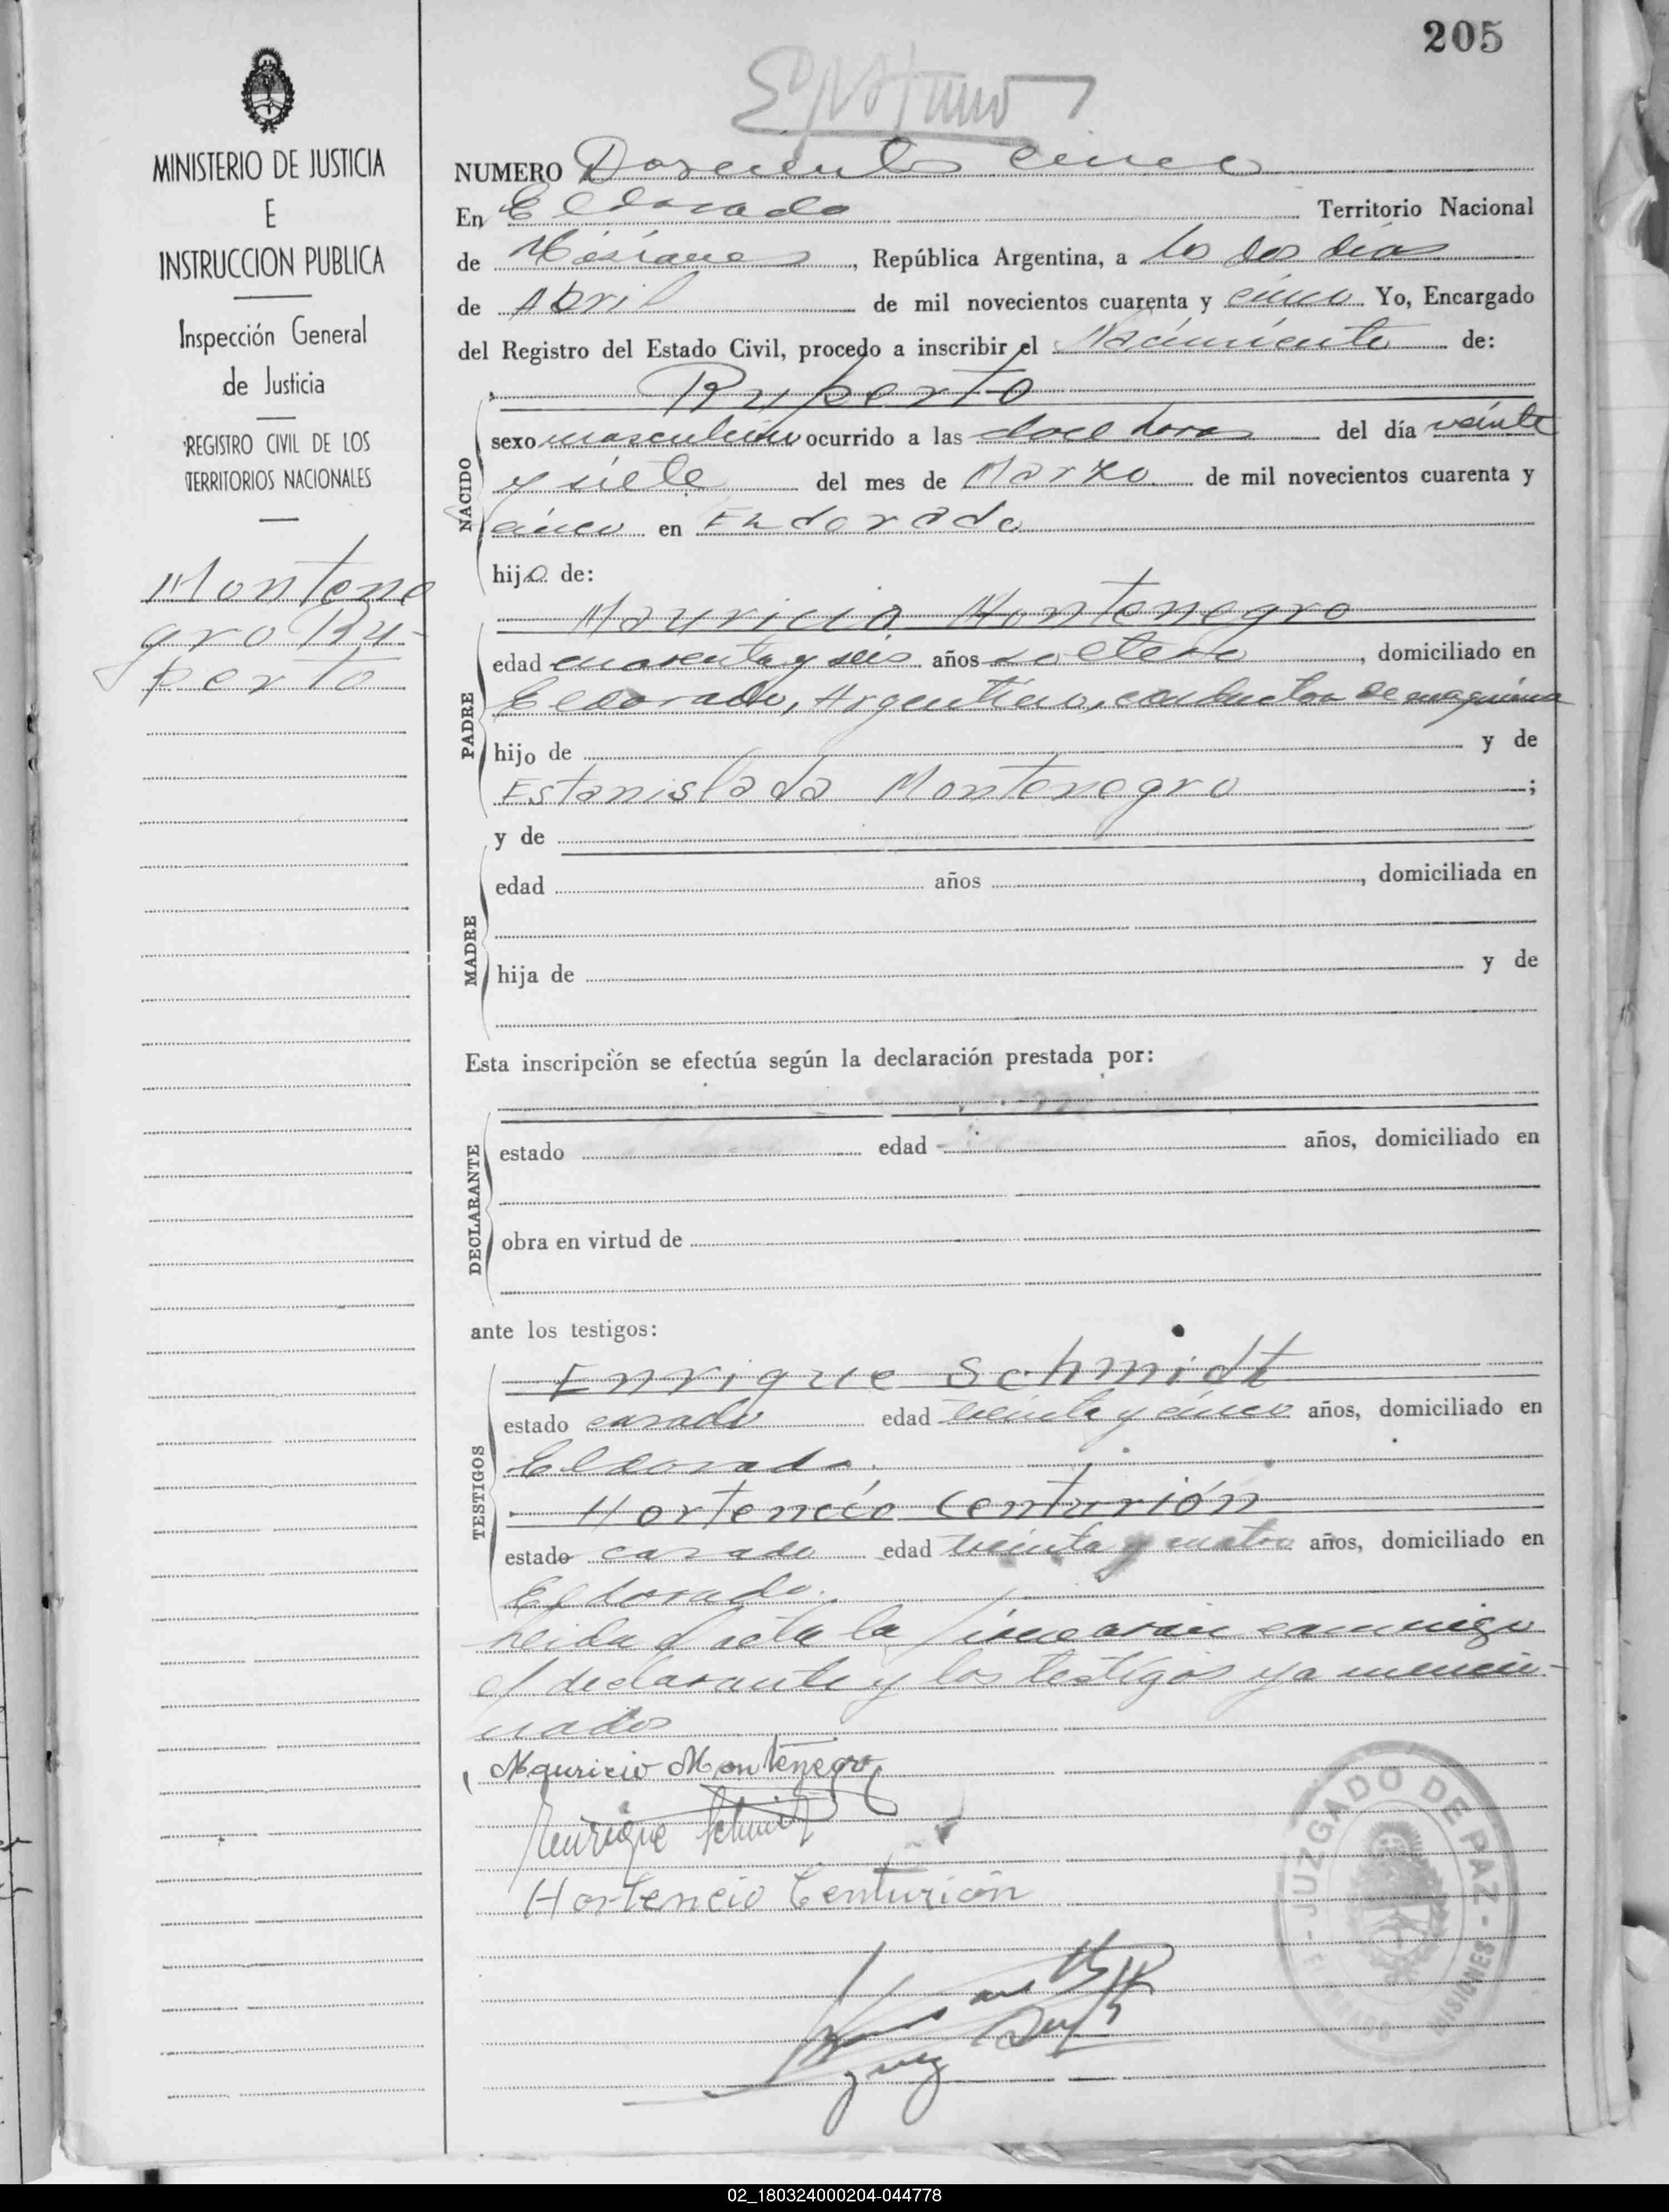 205
MINISTERIO DE JUSTICIA
E
INSTRUCCION PUBLICA
Inspección General
de Justicia
REGISTRO CIVIL DE LOS
TERRITORIOS NACIONALES
Montene
gro Ru-
perto
NUMERO Doscientos cinco
En Eldorado Territorio Nacional
de Misiones, República Argentina, a los dos dias
de Abril de mil novecientos cuarenta y cinco Yo, Encargado
del Registro del Estado Civil, procedo a inscribir el Nacimiento de:
Ruperto
NACIDO
sexo masculino ocurrido a las doce horas del día veinte
y siete del mes de Marzo de mil novecientos cuarenta y
cinco en Eldorado
hijo de:
Mauricio Montenegro
PADRE
edad cuarenta y seis años soltero, domiciliado en
Eldorado, Argentino, conductor de maquina
hijo de y de
Estanislada Montenegro ;
y de
MADRE
edad años , domiciliada en
hija de y de
Esta inscripción se efectúa según la declaración prestada por:
DECLARANTE
estado edad años, domiciliado en
obra en virtud de
ante los testigos:
Enrique Schmidt
TESTIGOS
estado casado edad treinta y cinco años, domiciliado en
Eldorado.
Hortencio Centurión
estado casado edad treinta y cuatro años, domiciliado en
Eldorado.
Leida el acta la firmaron conmigo
el declarante y los testigos ya mencio-
nados
Mauricio Montenegro
Henrique Schmidt
Hortencio Centurión
JUZGADO DE PAZ
MISIONES
02_180324000204-044778